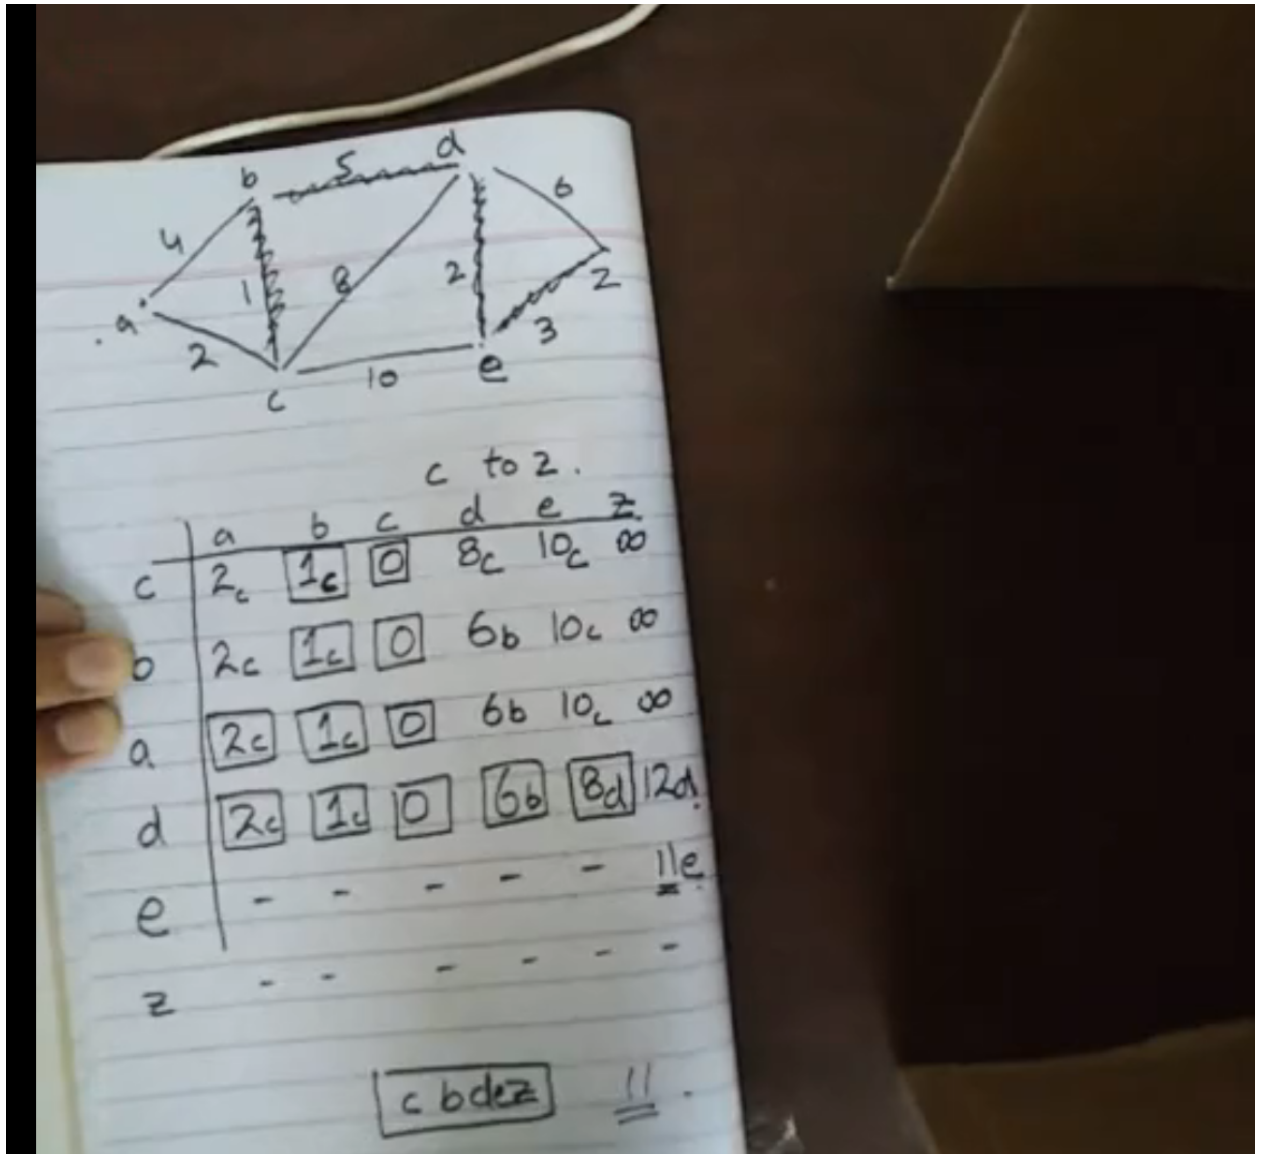 b 5 d
4 1 8 2 6
a 2 c 10 e 3 z
c to z.
a b c d e z
c 2c 1c 0 8c 10c ∞
b 2c 1c 0 6b 10c ∞
a 2c 1c 0 6b 10c ∞
d 2c 1c 0 6b 8d 12d
e - - - - - 11e
z - - - - - -
c bdez 11.